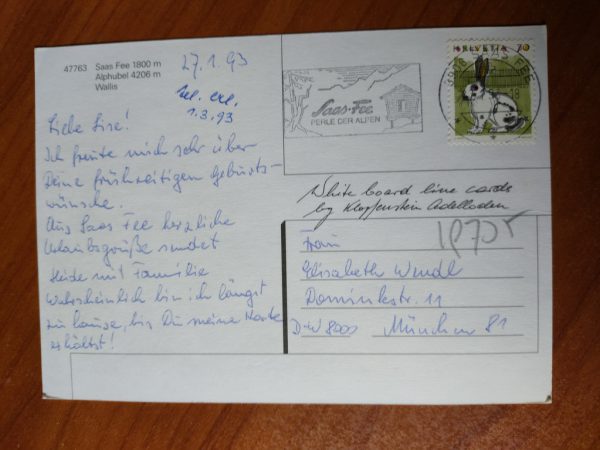 47763 Saas Fee 1800 m
Alphubel 4206 m
Wallis
27.1.93
tel. erl.
1.3.93
Liebe Lise!
Ich freute mich sehr über
Deine frühzeitigen Geburts-
wünsche.
Aus Saas Fee herzliche
Urlaubsgrüße sendet
Heide mit Familie
Wahrscheinlich bin ich längst
zu hause, bis Du meine Karte
erhältst!
Saas-Fee
PERLE DER ALPEN
HELVETIA 70
SAAS-FEE
White board line cards
by Klopfenstein Adelboden
Frau
Elisabeth Wendl
Dominikstr. 11
D-W 8000 München 81